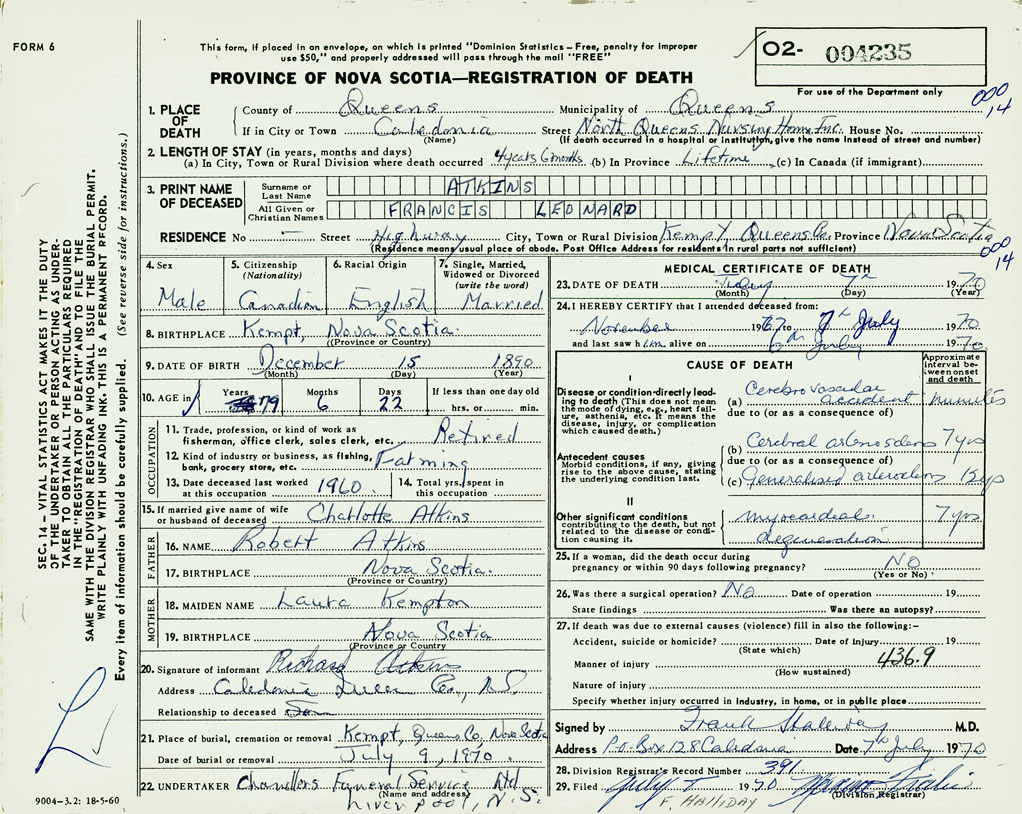 FORM 6
This form, if placed in an envelope, on which is printed "Dominion Statistics – Free, penalty for improper
use $50," and properly addressed will pass through the mail "FREE"
PROVINCE OF NOVA SCOTIA—REGISTRATION OF DEATH
O2- 004235
For use of the Department only
000
14
1. PLACE OF DEATH
County of Queens Municipality of Queens
If in City or Town Caledonia Street North Queens Nursing Home Inc. House No.
(Name) (If death occurred in a hospital or institution, give the name instead of street and number)
2. LENGTH OF STAY (in years, months and days)
(a) In City, Town or Rural Division where death occurred 4 years 6 months (b) In Province Lifetime (c) In Canada (if immigrant)
3. PRINT NAME OF DECEASED
Surname or Last Name ATKINS
All Given or Christian Names FRANCIS LEONARD
RESIDENCE No — Street Highway City, Town or Rural Division Kempt, Queens Co. Province Nova Scotia
(Residence means usual place of abode. Post Office Address for residents in rural parts not sufficient)
000
14
4. Sex Male
5. Citizenship (Nationality) Canadian
6. Racial Origin English
7. Single, Married, Widowed or Divorced (write the word) Married
8. BIRTHPLACE Kempt, Nova Scotia.
(Province or Country)
9. DATE OF BIRTH December 15 1890
(Month) (Day) (Year)
10. AGE in Years 79 Months 6 Days 22 If less than one day old hrs. or min.
OCCUPATION
11. Trade, profession, or kind of work as fisherman, office clerk, sales clerk, etc. Retired
12. Kind of industry or business, as fishing, bank, grocery store, etc. Farming
13. Date deceased last worked at this occupation 1960.
14. Total yrs. spent in this occupation
15. If married give name of wife or husband of deceased Charlotte Atkins
FATHER
16. NAME Robert Atkins
17. BIRTHPLACE Nova Scotia.
(Province or Country)
MOTHER
18. MAIDEN NAME Laura Kempton
19. BIRTHPLACE Nova Scotia
(Province or Country
20. Signature of informant Richard Atkins
Address Caledonia Queens Co., N.S.
Relationship to deceased Son
21. Place of burial, cremation or removal Kempt, Queens Co, Nova Scotia
Date of burial or removal July 9, 1970.
22. UNDERTAKER Chandlers Funeral Service Ltd
(Name and address)
Liverpool, N.S.
9004—3.2: 18-5-60
MEDICAL CERTIFICATE OF DEATH
23. DATE OF DEATH July 7th 1970
(Month) (Day) (Year)
24. I HEREBY CERTIFY that I attended deceased from:
November 1967 to 7th July 1970
and last saw him alive on 6th July 1970
CAUSE OF DEATH
Approximate interval between onset and death
I
Disease or condition directly leading to death (This does not mean the mode of dying, e.g., heart failure, asthenia, etc. It means the disease, injury, or complication which caused death.)
(a) Cerebrovascular accident minutes
due to (or as a consequence of)
Antecedent causes
Morbid conditions, if any, giving rise to the above cause, stating the underlying condition last.
(b) Cerebral arteriosclerosis 7 yrs
due to (or as a consequence of)
(c) Generalised arteriosclerosis 15 yrs
II
Other significant conditions contributing to the death, but not related to the disease or condition causing it.
myocardial degeneration 7 yrs
25. If a woman, did the death occur during pregnancy or within 90 days following pregnancy? NO
(Yes or No)
26. Was there a surgical operation? No Date of operation 19
State findings Was there an autopsy?
27. If death was due to external causes (violence) fill in also the following:–
Accident, suicide or homicide? Date of injury 19
(State which)
Manner of injury 436.9
(How sustained)
Nature of injury
Specify whether injury occurred in industry, in home, or in public place
Signed by Frank M.D.
Address P.O. Box 128 Caledonia Date 7th July 1970
28. Division Registrar's Record Number 391
29. Filed July 1970
(Division Registrar)
F. HALLIDAY
SEC. 14 – VITAL STATISTICS ACT MAKES IT THE DUTY
OF THE UNDERTAKER OR PERSON ACTING AS UNDERTAKER TO OBTAIN ALL THE PARTICULARS REQUIRED
IN THE "REGISTRATION OF DEATH" AND TO FILE THE
SAME WITH THE DIVISION REGISTRAR WHO SHALL ISSUE THE BURIAL PERMIT.
WRITE PLAINLY WITH UNFADING INK. THIS IS A PERMANENT RECORD.
Every item of information should be carefully supplied. (See reverse side for instructions.)